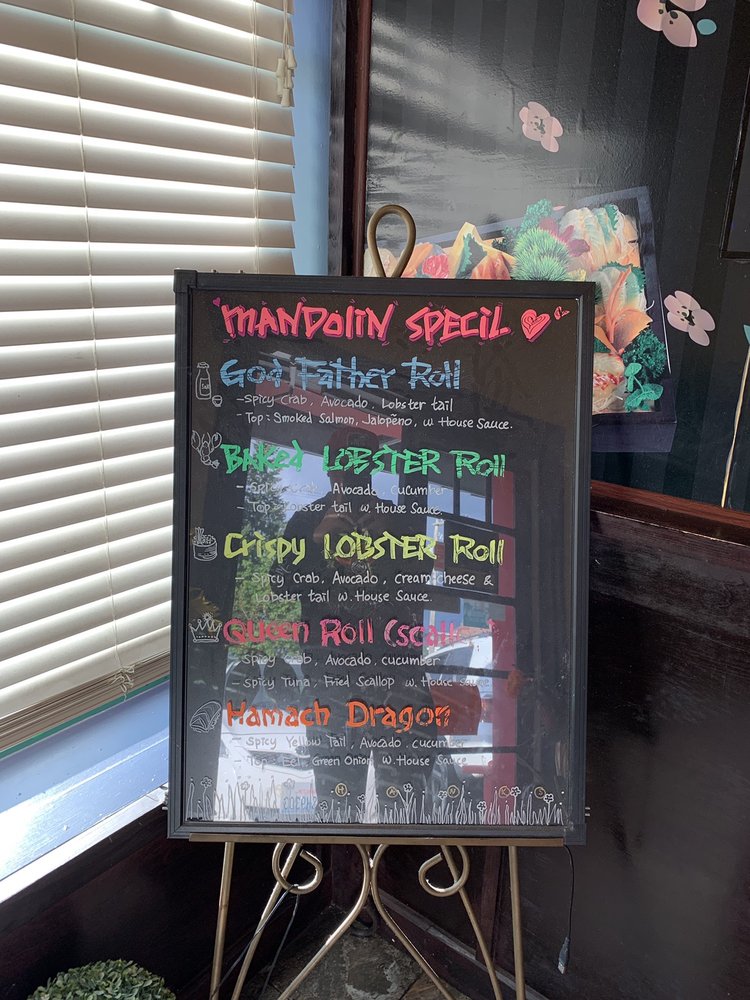 MANDOLIN SPECIL
God Father Roll
- Spicy Crab, Avocado, Lobster tail
- Top : Smoked Salmon, Jalopeño, w House Sauce.
Baked LOBSTER Roll
- Spicy Crab, Avocado, cucumber
- Top : Lobster tail w. House Sauce.
Crispy LOBSTER Roll
- Spicy Crab, Avocado, cream cheese &
Lobster tail w. House Sauce.
Queen Roll
- Spicy Crab, Avocado, cucumber
- Spicy Tuna, Fried Scallop w. House Sauce
Hamach Dragon
- Spicy Yellow Tail, Avocado, cucumber
- Top : Eel, Green Onion w. House Sauce